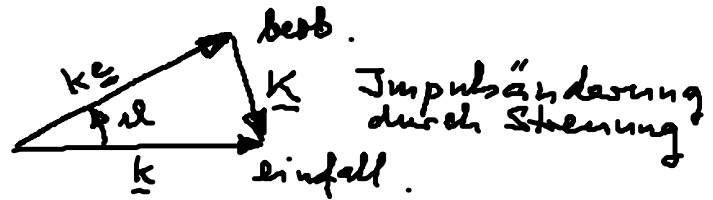 beob.
k e
K
Impulsänderung
durch Streuung
ϑ
k
einfall.